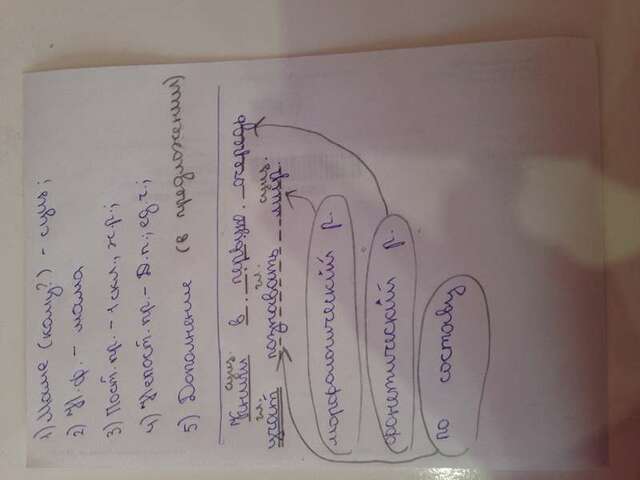 1) Маме (кому?) - сущ;
2) Н.ф. - мама
3) Пост. пр. - 1 скл., ж.р.;
4) Непост. пр. - Д.п.; ед.ч.;
5) Дополнение (в предложении)
сущ.
Книги в первую очередь
гл. гл. сущ.
учат познавать мир.
морфологический р.
фонетический р.
по составу